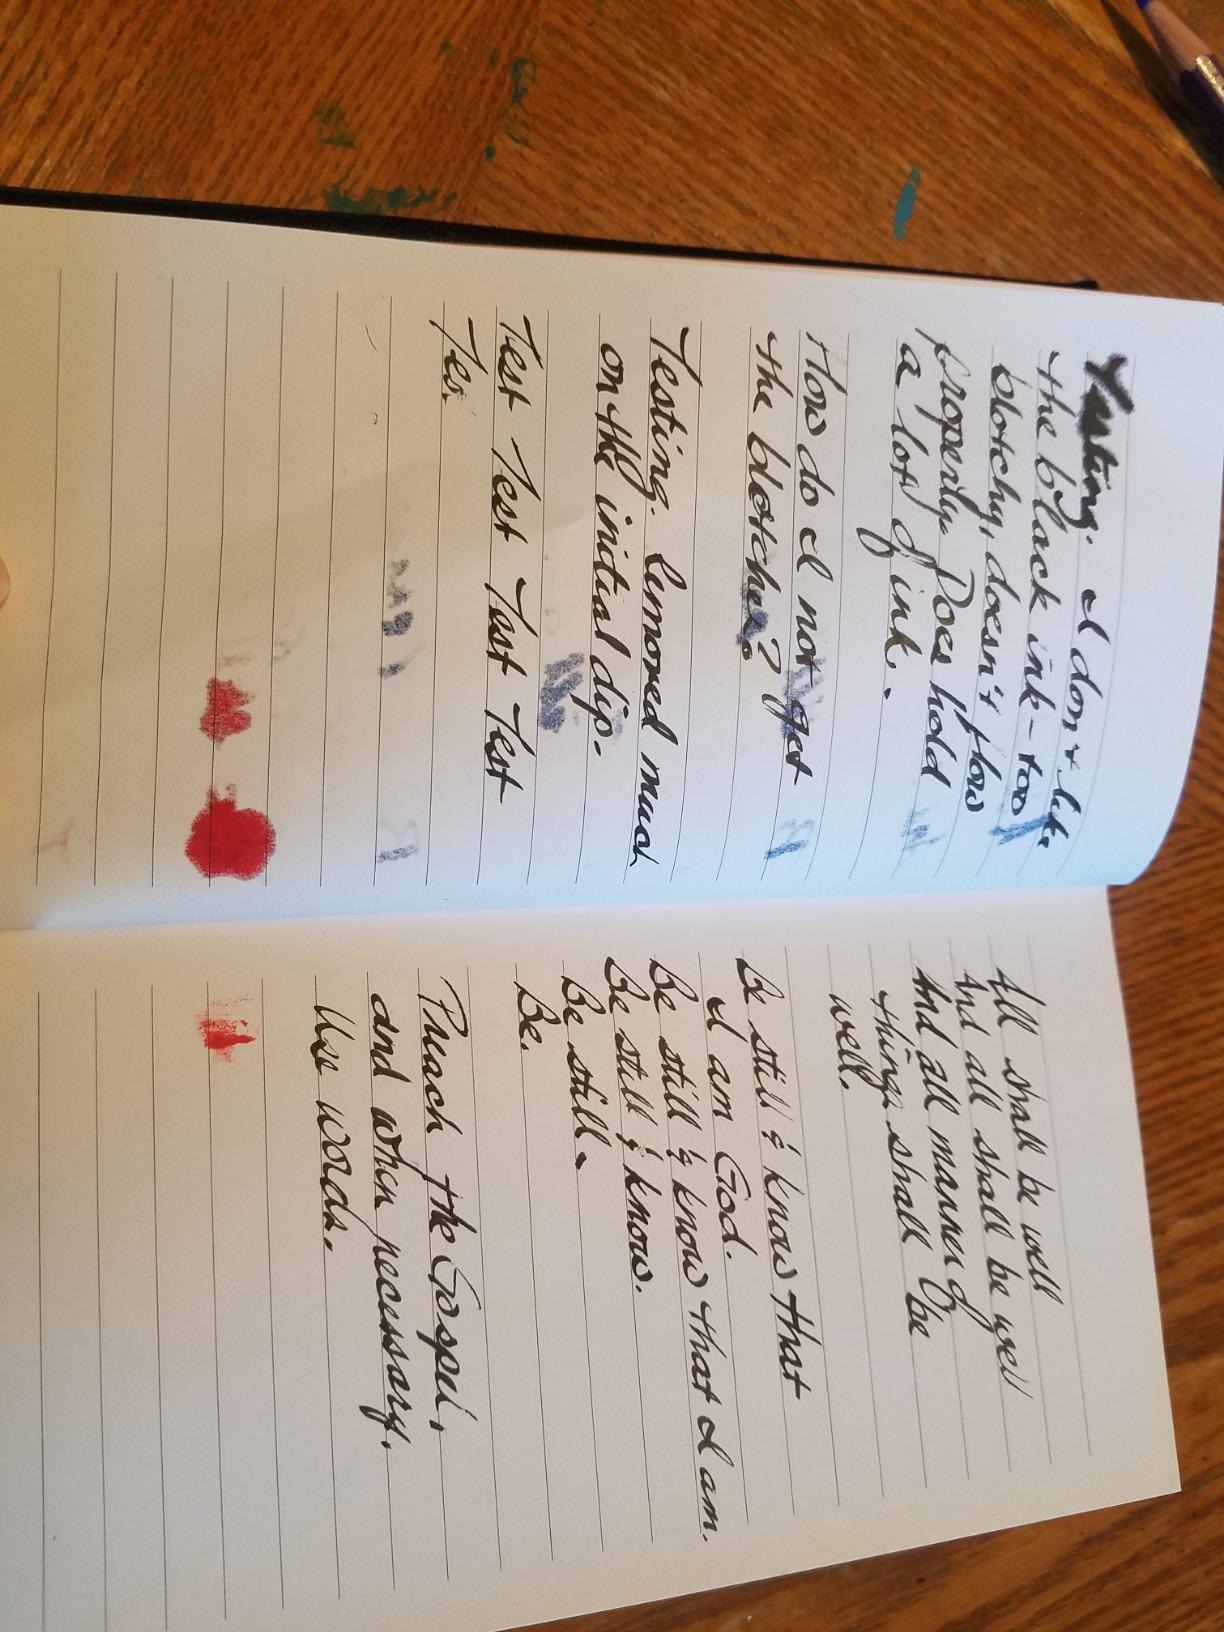 Testing. I don't like
the black ink - too
blotchy, doesn't flow
properly. Does hold
a lot of ink.
How do I not get
the blotches?
Testing. Removed much
on the initial dip.
Test Test Test Test
Tes.
All shall be well
And all shall be well
And all manner of
things shall be
well.
Be still & know that
I am God.
Be still & know that I am.
Be still & know.
Be still.
Be.
Preach the Gospel,
and when necessary,
Use words.